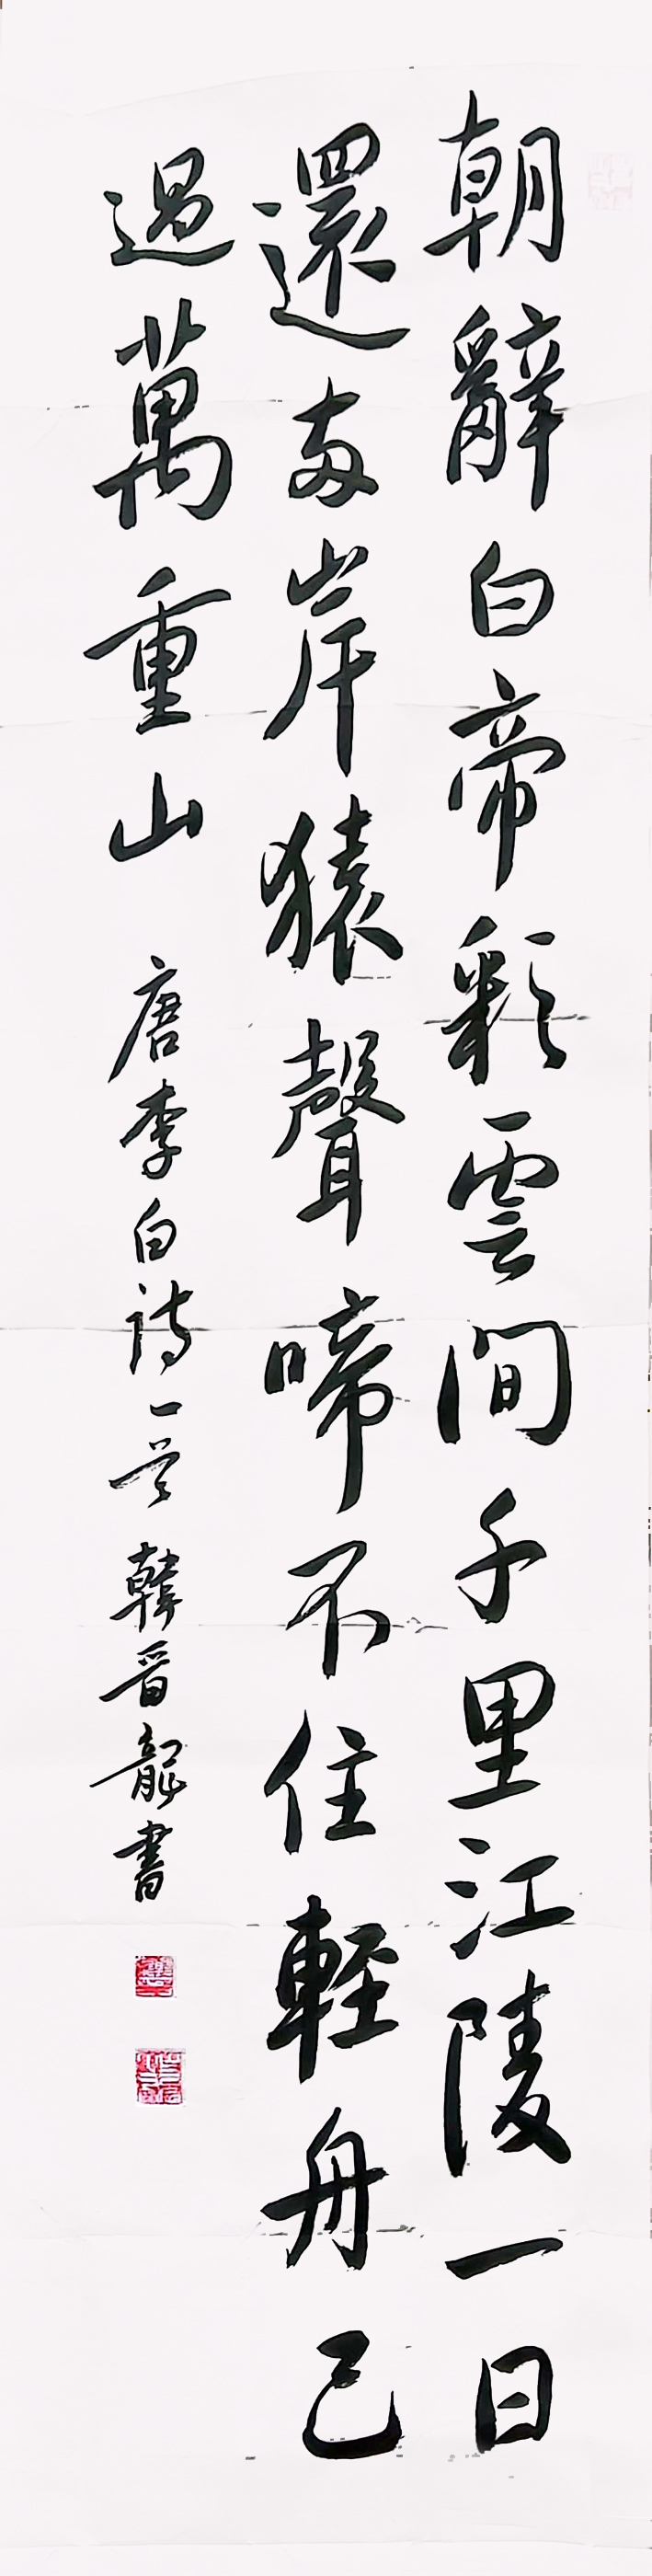 朝辭白帝彩雲間千里江陵一日
還兩岸猿聲啼不住輕舟已
過萬重山 唐李白詩一首 韓晉龍書